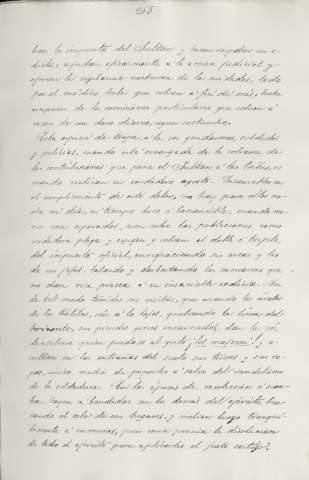 255
bran la impuesta del Sultan y hacen respetar sus e-
dictos, ayudan eficazmente á la accion judicial y
ejercen la vigilancia nocturna de las ciudades, todo
por el módico haber que cobran á fin de mes, hecha
excepcion de las comisiones particulares que cobran á
razon de un duro diario segun costumbre.
Esta especie de tropa, á la vez gendarmes, soldados
y policias, cuando está encargada de la cobranza de
las contribuciones que pone el Sultan á las tribus, es
cuando realizan su verdadero agosto. Incansables en
el cumplimiento de este deber, no hay para ellos no-
che ni dia, ni tiempo duro ó bonancible, mande ma-
no son esperados, caen sobre las poblaciones como
verdadera plaga y exigen y cobran el doble ó triple
del impuesto oficial, enriqueciendo sus arcas y las
de sus jefes, talando y devastando las comarcas que
no dan rica presa á su insaciable codicia. Son
de tal modo temidas sus visitas, que cuando los árabes
de las kábilas, ven á lo lejos, quebrando la línea del
horizonte, sus picudos gorros encarnados, dan la voz
de alarma quien puedase al grito ¡los mejaznis! y o-
cultan en las entrañas del suelo sus trigos y sus ro-
pas, único medio de ponerlos á salvo del vandalismo
de la soldadesca. En las épocas de recoleccion ó siem-
bra, vayan á bandadas con los demás del ejército bus-
cando el calor de sus hogares, y vuelven luego tranqui-
lamente é inmunes, pues seria precisa la disolucion
de todo el ejército para aplicarles el justo castigo.